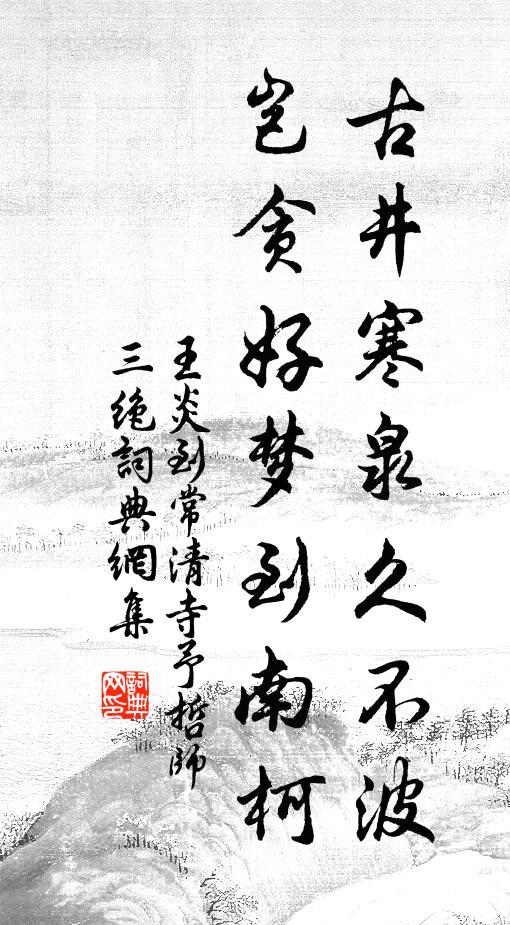 古井寒泉久不波
岂贪好梦到南柯
王炎到常清寺予哲師
三绝詞典網集
詞典网印